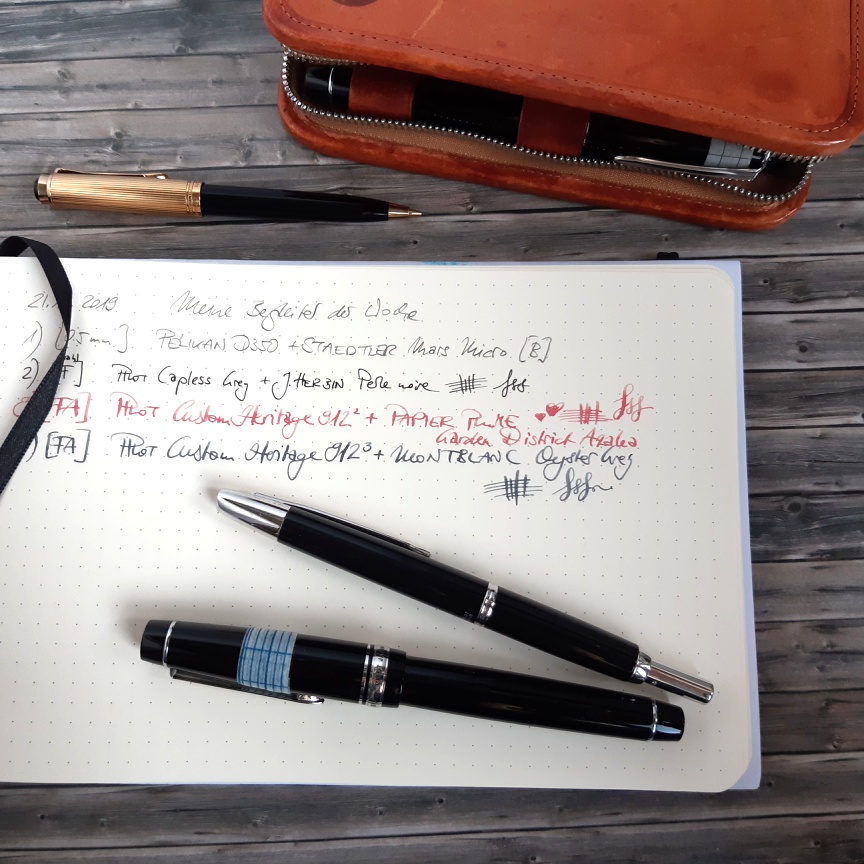 2019 Meine Begleiter der Woche
1) [0.5mm] PELIKAN D350 + STAEDTLER Mars Micro [B]
2) [F] PILOT Capless Grey + J. HERBIN Perle noire
[FA] PILOT Custom Heritage 912² + PAPIER PLUME
Garden District Azalea
) [FA] PILOT Custom Heritage 912³ + MONTBLANC Oyster Grey